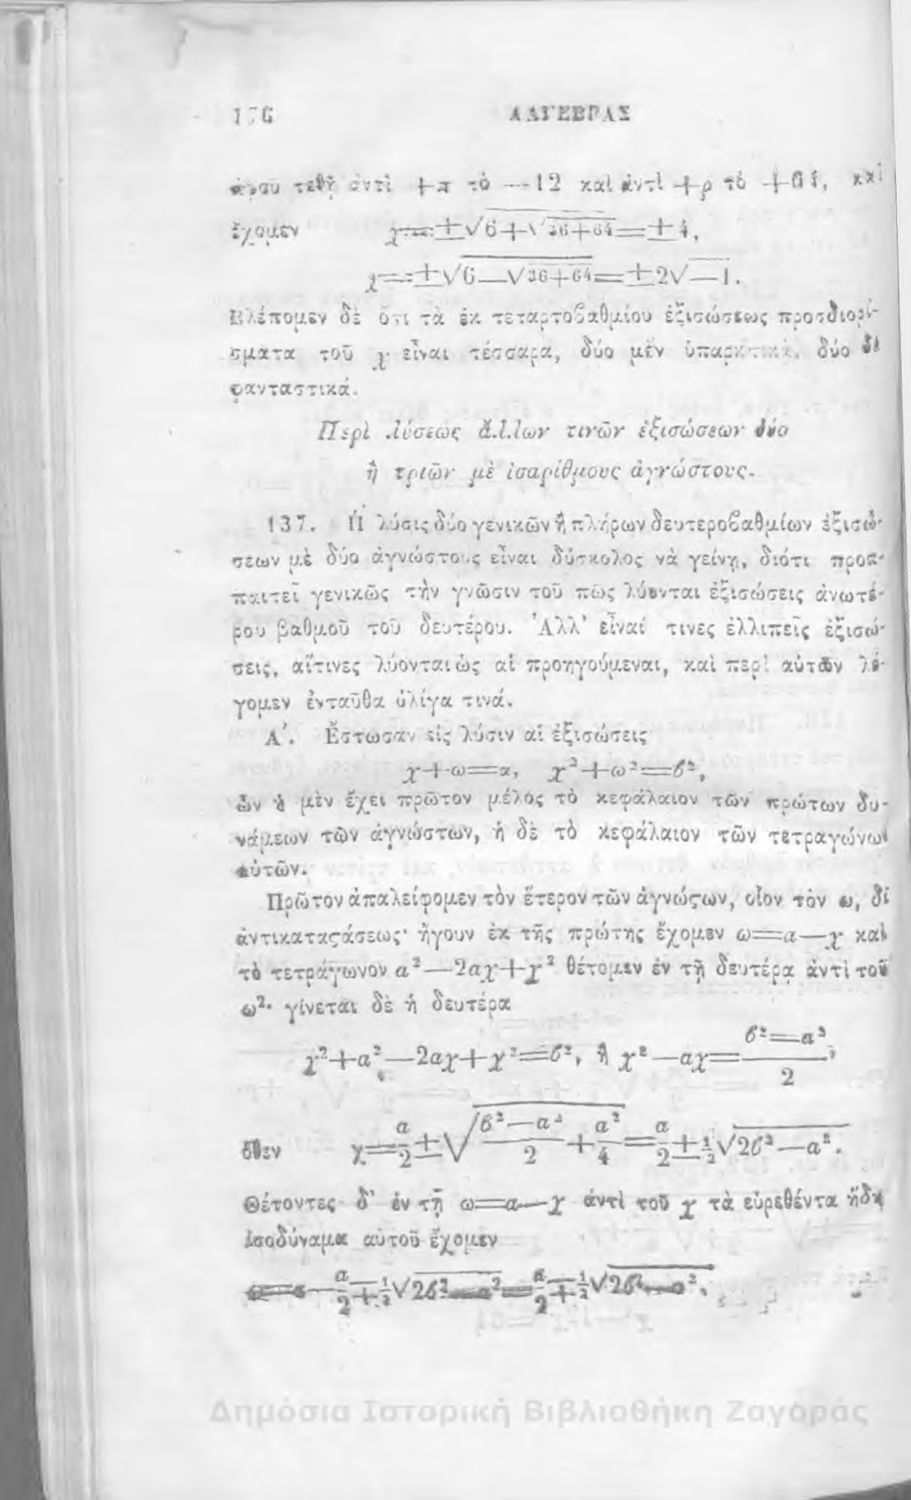 176 ΑΛΓΕΒΡΑΣ
τεθῇ ἀντὶ +π τὸ —12 καὶ ἀντὶ +ρ τὸ +64, καὶ
ἔχομεν χ=±√6+√36+64=±4,
χ=±√6—√36+64=±2√—1.
Βλέπομεν δὲ ὅτι τὰ ἐκ τεταρτοβαθμίου ἐξισώσεως προσδιορί-
σματα τοῦ χ εἶναι τέσσαρα, δύο μὲν ὑπαρκτικὰ, δύο δὲ
φανταστικά.
Περὶ λύσεως ἄλλων τινῶν ἐξισώσεων δύο
ἢ τριῶν μὲ ἰσαρίθμους ἀγνώστους.
137. Ἡ λύσις δύο γενικῶν ἢ πλήρων δευτεροβαθμίων ἐξισώ-
σεων μὲ δύο ἀγνώστους εἶναι δύσκολος νὰ γείνῃ, διότι προα-
παιτεῖ γενικῶς τὴν γνῶσιν τοῦ πῶς λύονται ἐξισώσεις ἀνωτέ-
ρου βαθμοῦ τοῦ δευτέρου. Ἀλλ' εἶναί τινες ἐλλιπεῖς ἐξισώ-
σεις, αἵτινες λύονται ὡς αἱ προηγούμεναι, καὶ περὶ αὐτῶν λέ-
γομεν ἐνταῦθα ὀλίγα τινά.
Α΄. Ἔστωσαν εἰς λύσιν αἱ ἐξισώσεις
χ+ω=α, χ²+ω²=β²,
ὧν ἡ μὲν ἔχει πρῶτον μέλος τὸ κεφάλαιον τῶν πρώτων δυ-
νάμεων τῶν ἀγνώστων, ἡ δὲ τὸ κεφάλαιον τῶν τετραγώνων
αὐτῶν.
Πρῶτον ἀπαλείφομεν τὸν ἕτερον τῶν ἀγνώςων, οἷον τὸν ω, δι
ἀντικαταςάσεως· ἤγουν ἐκ τῆς πρώτης ἔχομεν ω=α—χ καὶ
τὸ τετράγωνον α²—2αχ+χ² θέτομεν ἐν τῇ δευτέρᾳ ἀντὶ τοῦ
ω²· γίνεται δὲ ἡ δευτέρα
χ²+α²—2αχ+χ²=β², ἢ χ²—αχ=β²—α²/2,
ὅθεν χ=α/2±√β²—α²/2+α²/4=α/2±½√2β²—α².
Θέτοντες δ' ἐν τῇ ω=α—χ ἀντὶ τοῦ χ τὰ εὑρεθέντα ἤδη
ἰσοδύναμα αὐτοῦ ἔχομεν
ω=α—α/2∓½√2β²—α²=α/2∓½√2β²—α².
Δημόσια Ιστορική Βιβλιοθήκη Ζαγοράς